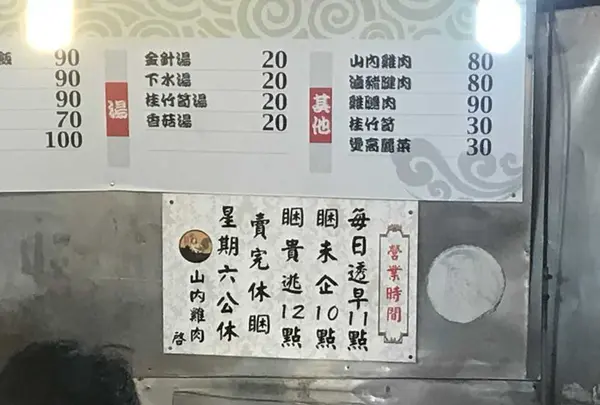 飯 90
90
90
70
100
湯
金針湯 20
下水湯 20
桂竹筍湯 20
香菇湯 20
其他
山內雞肉 80
滷豬腱肉 80
雞腿肉 90
桂竹筍 30
燙高麗菜 30
營業時間
每日透早11點
睏未企10點
睏貴逃12點
賣完休睏
星期六公休
山內雞肉
啓